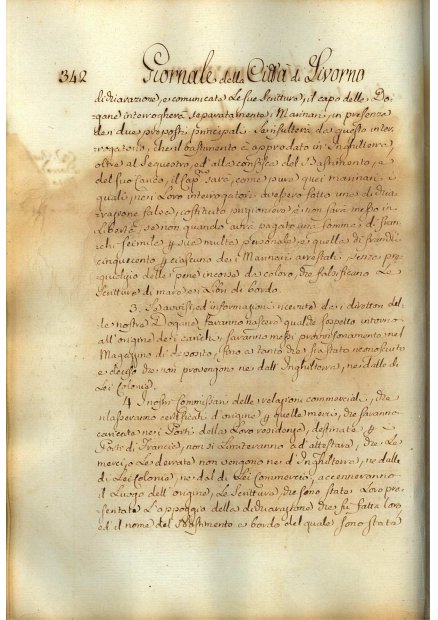 342 Giornale della Città di Livorno
dichiarazione, e comunicate le sue scritture, il capo delle Do
gane interrogherà separatamente i Marinari, in presenza
de' due preposti principali. Se risulterà da questo inter
rogatorio, che il bastimento è approdato in Inghilterra
oltre al sequestro, ed alla confisca del Bastimento, e
del suo Carico, il Capº sarà, come pure quei marinari i
quali nei loro interrogatorj avessero fatto una dichia
razione falsa, costituito prigioniero e non sarà messo in
libertà, se non quando avrà pagato una somma di fran
chi seimila p sua multa personale, e quella di franchi
cinquecento p ciascuno dei Marinari arrestati, senza pre
giudizio delle pene incorse da coloro, che falsificano le
Scritture di mare e i libri di bordo.
3. Se avvisi, ed informazioni ricevute dai direttori del
le nostre Dogane faranno nascere qualche sospetto intorno
all'origine dei carichi, saranno messi provvisoriamente nel
Magazzino di deposito, fino a tanto che sia stato riconosciuto
e deciso che non provengono nè dall'Inghilterra, nè dalle di
Lei Colonie.
4. I nostri Commissari delle relazioni commerciali, che
rilasceranno certificati d'origine p quelle merci, che saranno
caricate nei Porti della loro residenza, destinate p
Porti di Francia, non si limiteranno ad attestare, che le
merci, o le derrate non vengono nè d'Inghilterra, nè dalle
di Lei Colonie, nè dal di Lei Commercio, accenneranno
il luogo dell'origine, le Scritture, che sono state loro pre
sentate l'appoggio della dichiarazione che fu fatta loro
ed il nome del Bastimento a bordo del quale sono state